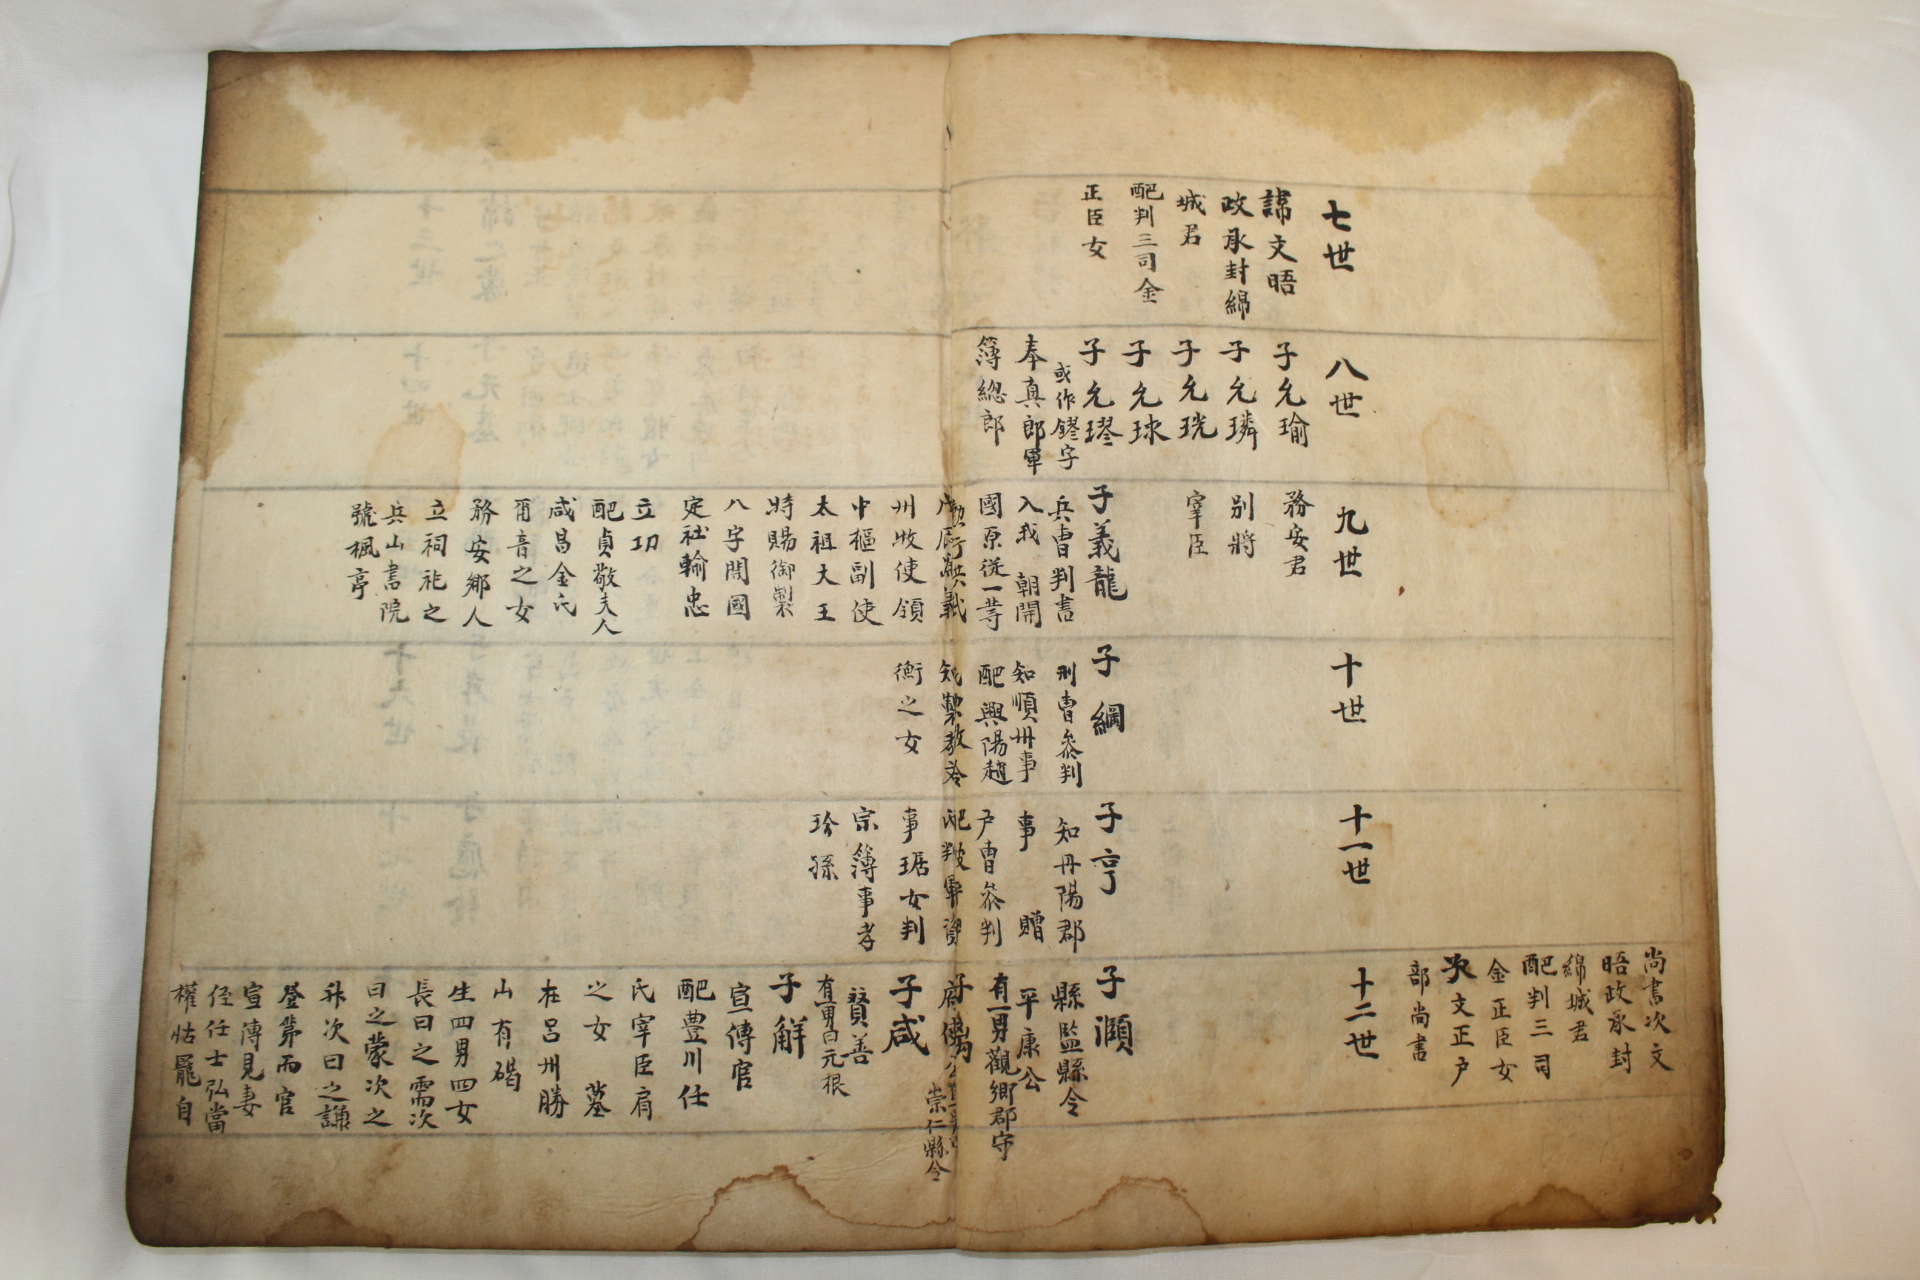 七世
諱文晤
政丞封綿
城君
配判三司金
正臣女
八世
子允瑜
子允璘
子允珖
子允球
子允璆
或作鏐字
奉真郎軍
簿総郎
九世
務安君
别將
宰臣
子義龍
兵曺判書
入我 朝開
國原從一等
州牧使領
中樞副使
太祖大王
時賜御製
八字閏國
定社輸忠
立功
配貞敬夫人
咸昌金氏
爾音之女
務安鄉人
立祠祀之
兵山書院
號楓亭
十世
子綱
刑曺叅判
知順州事
配興陽趙
氏製教令
衡之女
十一世
子亨
知丹陽郡
事 贈
户曺叅判
事琚女判
宗簿事孝
珎孫
尚書次文
晤政丞封
綿城君
配判三司
金正臣女
次文正户
部尚書
十二世
子灝
縣監縣令
平康公
有一男觀鄉郡守
崇仁縣令
子咸
賛善
有一男曰元根
子解
宣傳官
配豊川任
氏宰臣肩
之女 墓
在呂州勝
山有碣
生四男四女
長曰之需次
曰之蒙次之
升次曰之謙
登第而官
宣傳見妻
侄任士弘當
權怙寵自